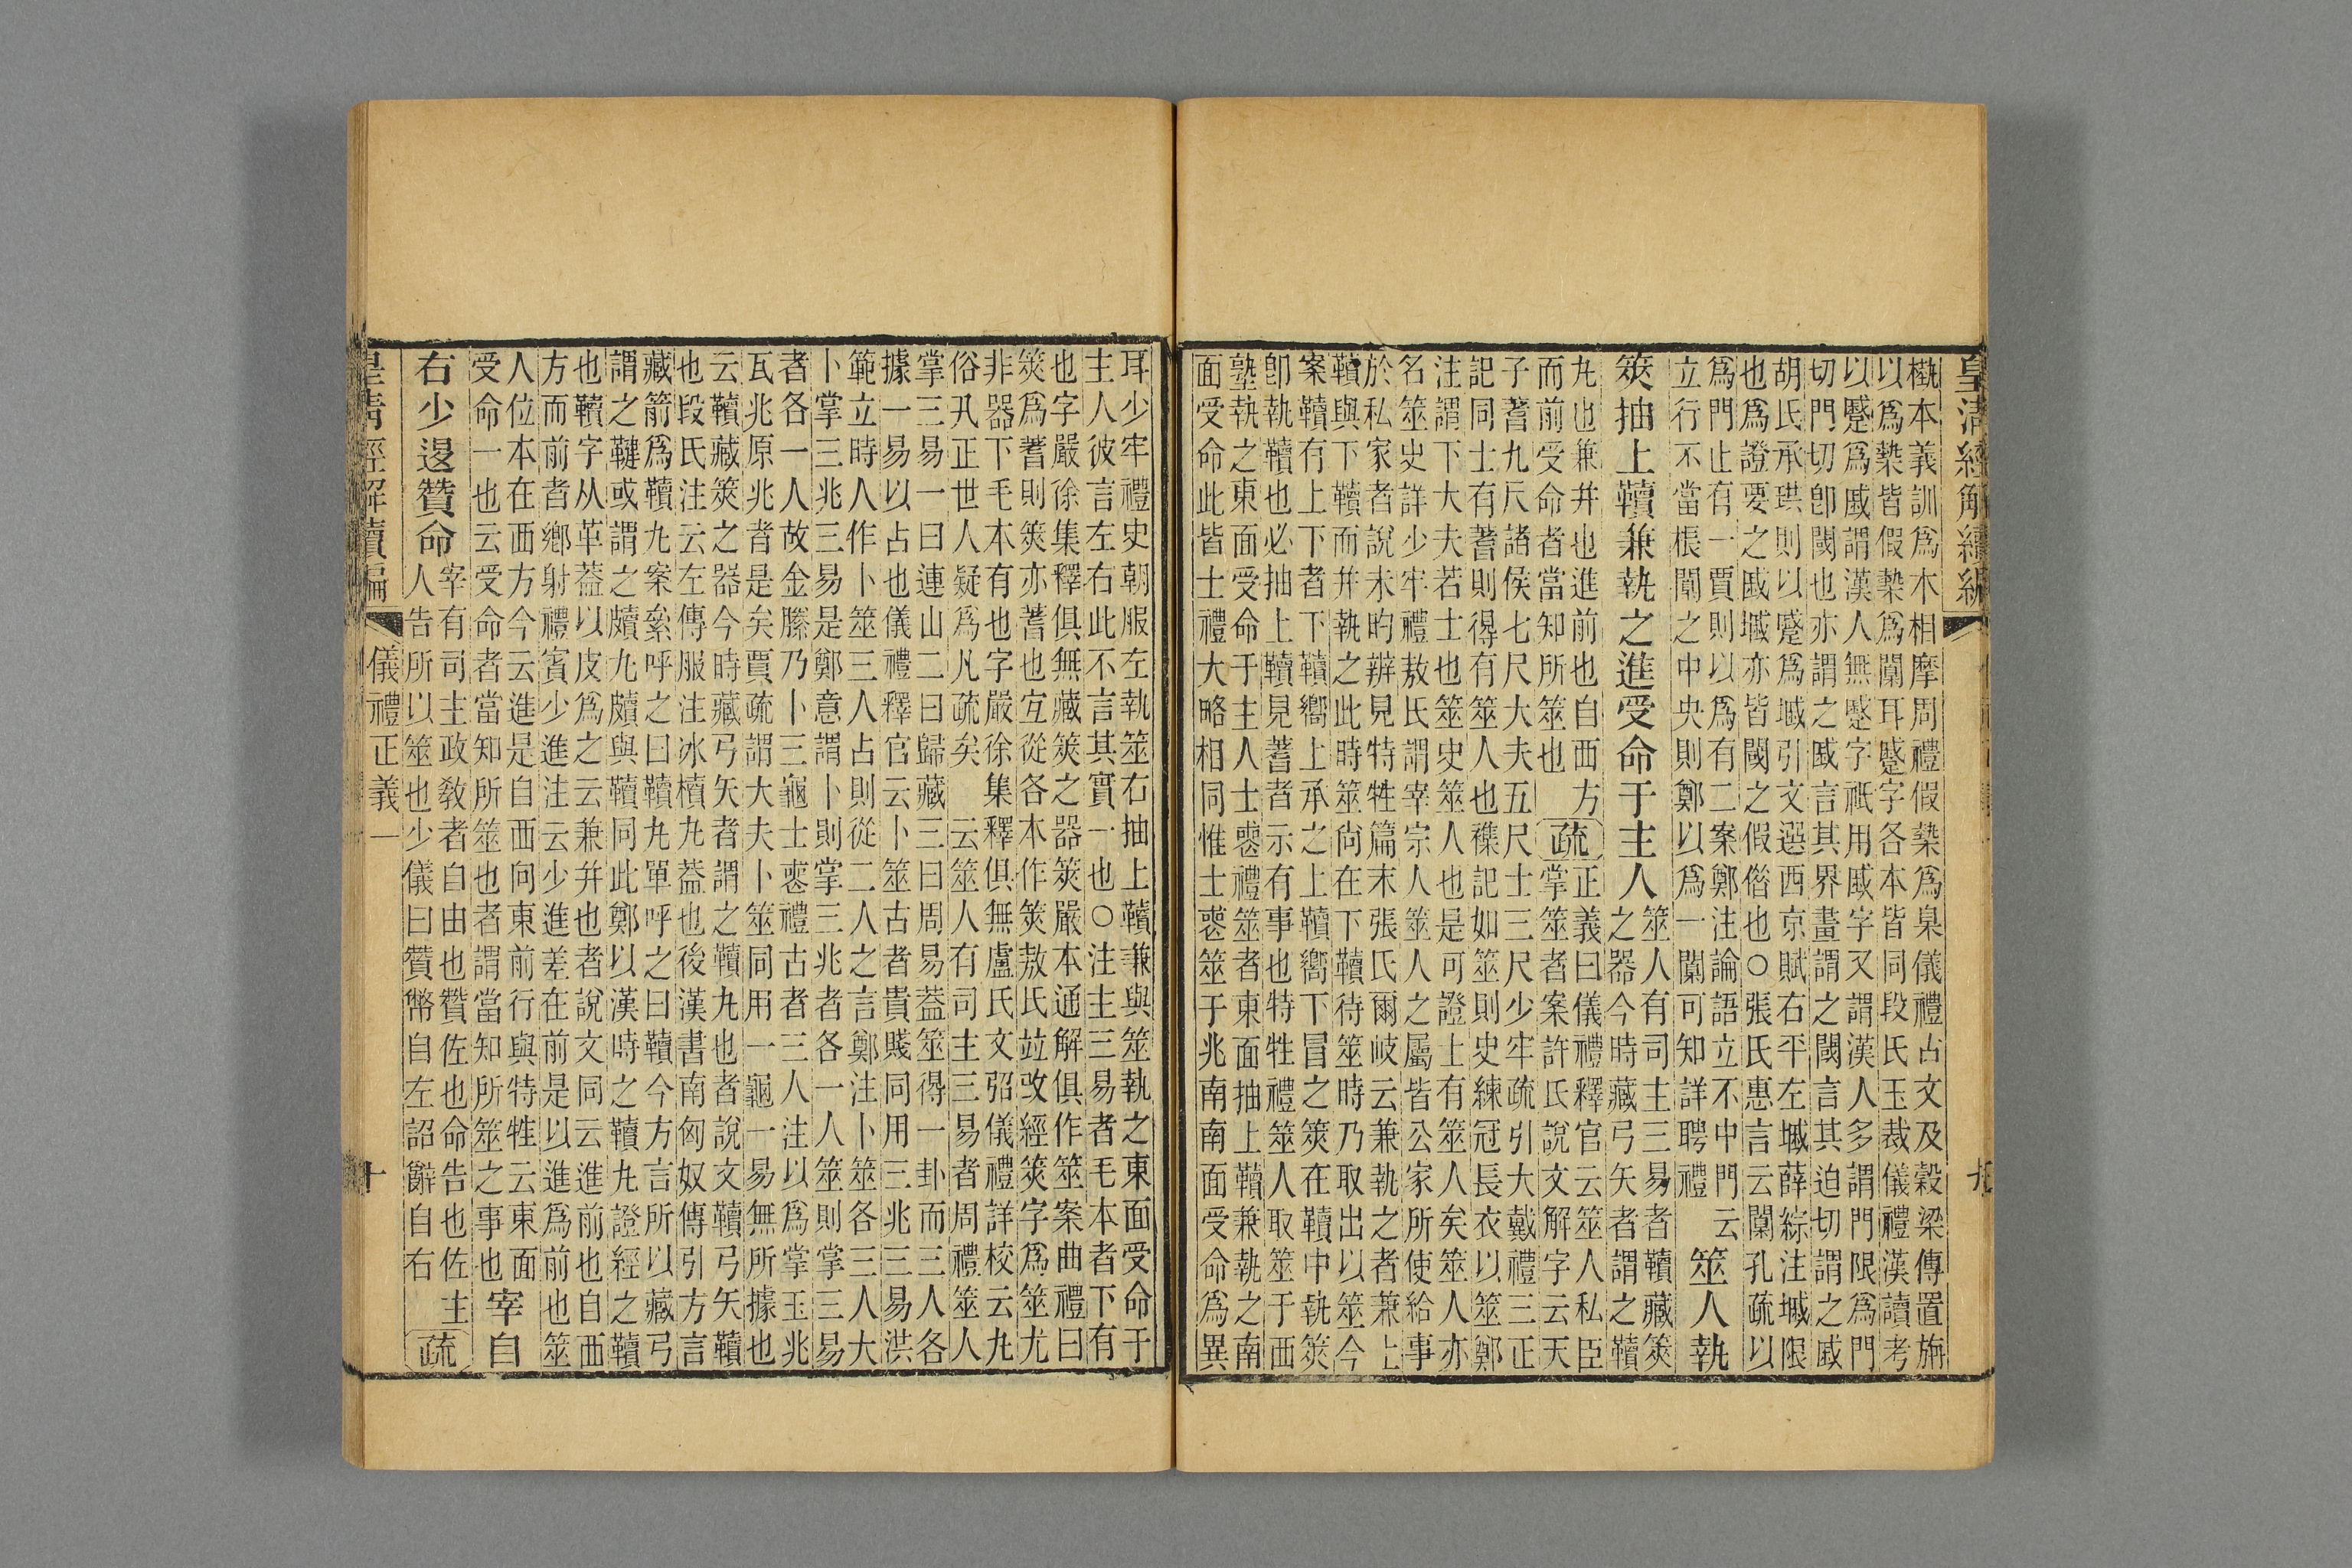 皇清經解續編
槷本義訓爲木相摩周禮假槷爲臬儀禮古文及穀梁傳置旃
以爲槷皆假槷爲闑耳蹙字各本皆同段氏玉裁儀禮漢讀考
以蹙爲戚謂漢人無蹙字祇用戚字又謂漢人多謂門限爲門
切門切卽閾也亦謂之戚言其界畫謂之閾言其迫切謂之戚
胡氏承珙則以蹙爲墄引文選西京賦右平左墄薛綜注墄限
也爲證要之戚墄亦皆閾之假借也○張氏惠言云闑孔疏以
爲門止有一賈則以爲有二案鄭注論語立不中門云
立行不當棖闑之中央則鄭以爲一闑可知詳聘禮
筮人執
筴抽上韇兼執之進受命于主人
筮人有司主三易者韇藏筴
之器今時藏弓矢者謂之韇
丸也兼幷也進前也自西方
而前受命者當知所筮也
疏
正義曰儀禮釋官云筮人私臣
掌筮者案許氏說文解字云天
子蓍九尺諸侯七尺大夫五尺士三尺少牢疏引大戴禮三正
記同士有蓍則得有筮人也襍記如筮則史練冠長衣以筮鄭
注謂下大夫若士也筮史筮人也是可證士有筮人矣筮人亦
名筮史詳少牢禮敖氏謂宰宗人筮人之屬皆公家所使給事
於私家者說未昀辨見特牲篇末張氏爾岐云兼執之者兼上
韇與下韇而幷執之此時筮尙在下韇待筮時乃取出以筮今
案韇有上下者下韇嚮上承之上韇嚮下冒之筴在韇中執筴
卽執韇也必抽上韇見蓍者示有事也特牲禮筮人取筮于西
塾執之東面受命于主人士喪禮筮者東面抽上韇兼執之南
面受命此皆士禮大略相同惟士喪筮于兆南南面受命爲異
九
耳少牢禮史朝服左執筮右抽上韇兼與筮執之東面受命于
主人彼言左右此不言其實一也○注主三易者毛本者下有
也字嚴徐集釋俱無藏筴之器筴嚴本通解俱作筮案曲禮曰
筴爲蓍則筴亦蓍也宜從各本作筴敖氏竝改經筴字爲筮尤
非器下毛本有也字嚴徐集釋俱無盧氏文弨儀禮詳校云丸
俗丮正世人疑爲凡疏矣　云筮人有司主三易者周禮筮人
掌三易一曰連山二曰歸藏三曰周易葢筮得一卦而三人各
據一易以占也儀禮釋官云卜筮古者貴賤同用三兆三易洪
範立時人作卜筮三人占則從二人之言鄭注卜筮各三人大
卜掌三兆三易是鄭意謂卜則掌三兆者各一人筮則掌三易
者各一人故金縢乃卜三龜士喪禮古者三人注以爲掌玉兆
瓦兆原兆者是矣賈疏謂大夫卜筮同用一龜一易無所據也
云韇藏筴之器今時藏弓矢者謂之韇丸也者說文韇弓矢韇
也段氏注云左傳服注冰櫝丸葢也後漢書南匈奴傳引方言
藏箭爲韇丸案絫呼之曰韇丸單呼之曰韇今方言所以藏弓
謂之鞬或謂之䪅丸䪅與韇同此鄭以漢時之韇丸證經之韇
也韇字从革葢以皮爲之云兼幷也者說文同云進前也自西
方而前者鄕射禮賓少進注云少進差在前是以進爲前也筮
人位本在西方今云進是自西向東前行與特牲云東面
受命一也云受命者當知所筮也者謂當知所筮之事也
宰自
右少退贊命
宰有司主政敎者自由也贊佐也命告也佐主
人告所以筮也少儀曰贊幣自左詔辭自右
疏
皇清經解續編
儀禮正義一
十